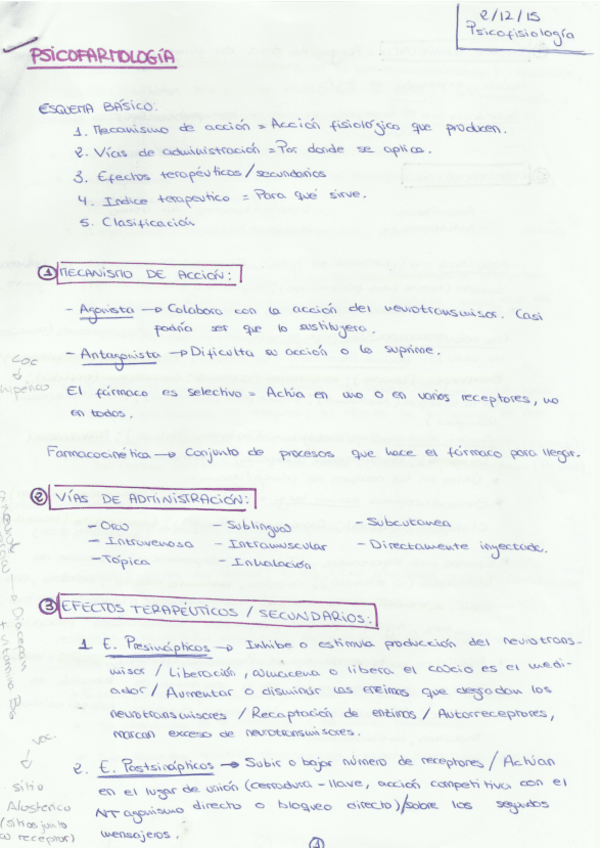 2/12/15
Psicofisiología
PSICOFARMOLOGÍA
ESQUEMA BÁSICO:
1. Mecanismo de acción = Acción fisiológica que producen.
2. Vías de administración = Por donde se aplica.
3. Efectos terapéuticos/secundarios
4. Indice terapeutico = Para qué sirve.
5. Clasificación
1 MECANISMO DE ACCIÓN:
- Agonista → Colabora con la acción del neurotransmisor. Casi
podría ser que lo sustituyera.
- Antagonista → Dificulta su acción o lo suprime.
El fármaco es selectivo = Actúa en uno o en varios receptores, no
en todos.
Farmacocinética → Conjunto de procesos que hace el fármaco para llegar.
2 VÍAS DE ADMINISTRACIÓN:
- Oral - Sublingual - Subcutanea
- Intravenosa - Intramuscular - Directamente inyectada.
- Tópica - Inhalación
3 EFECTOS TERAPÉUTICOS / SECUNDARIOS:
1. E. Presinápticos → Inhibe o estimula producción del neurotrans-
misor / Liberación, almacena o libera el calcio es el medi-
ador / Aumentar o disminuir las enzimas que degradan los
neurotransmisores / Recaptación de enzimas / Autorreceptores,
marcan exceso de neurotransmisores.
2. E. Postsinápticos → Subir o bajar número de receptores / Actúan
en el lugar de unión (cerradura - llave, acción competitiva con el
NT agonismo directo o bloqueo directo)/sobre los segundos
mensajeros.
→ Diacepan
+ vitamina B6
voc.
↓
sitio
Alosterico
(sitios junto
receptor)
1